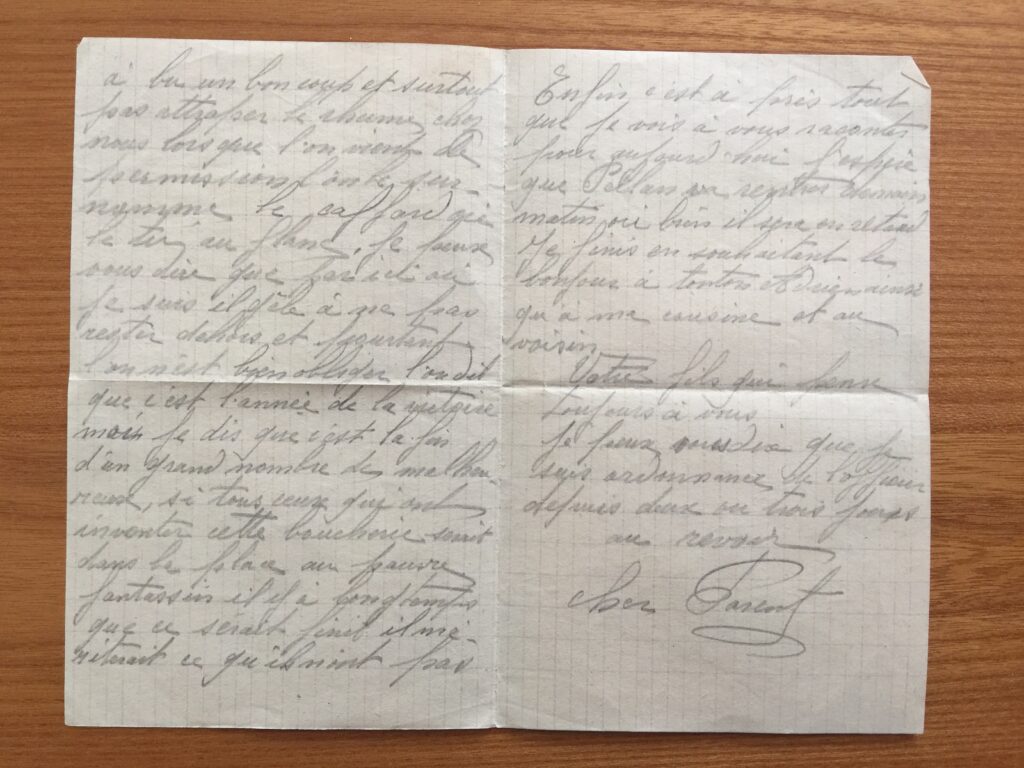 à bu un bon coup et surtout
pas attraper le rhume, chez
nous lorsque l'on vient de
permission l'on le sur-
nomme le caffard qui
le tu au flanc, je peux
vous dire que par ici où
je suis il gèle à ne pas
rester dehors et pourtant
l'on n'est bien obliger l'on dit
que c'est l'année de la victoire
mais je dis que c'est la fin
d'un grand nombre de malheu
reux, si tous ceux qui ont
inventer cette boucherie serait
dans la place au pauvre
fantassin il y à longtemps
que ce serait finit il mé-
riterait ce qu'ils n'ont pas
Enfin c'est à près tout
que je vois à vous raconter
pour aujourd'hui j'espère
que va rentrer demain
matin, où bien il sera en retard
Je finis en souhaitant le
bonjour à tonton Adrien ainsi
qu'à ma cousine et au
voisin
Votre fils qui pense
toujours à vous
Je peux vous dire que je
suis ordonnance de l'officier
depuis deux ou trois jours
au revoir
cher Parent